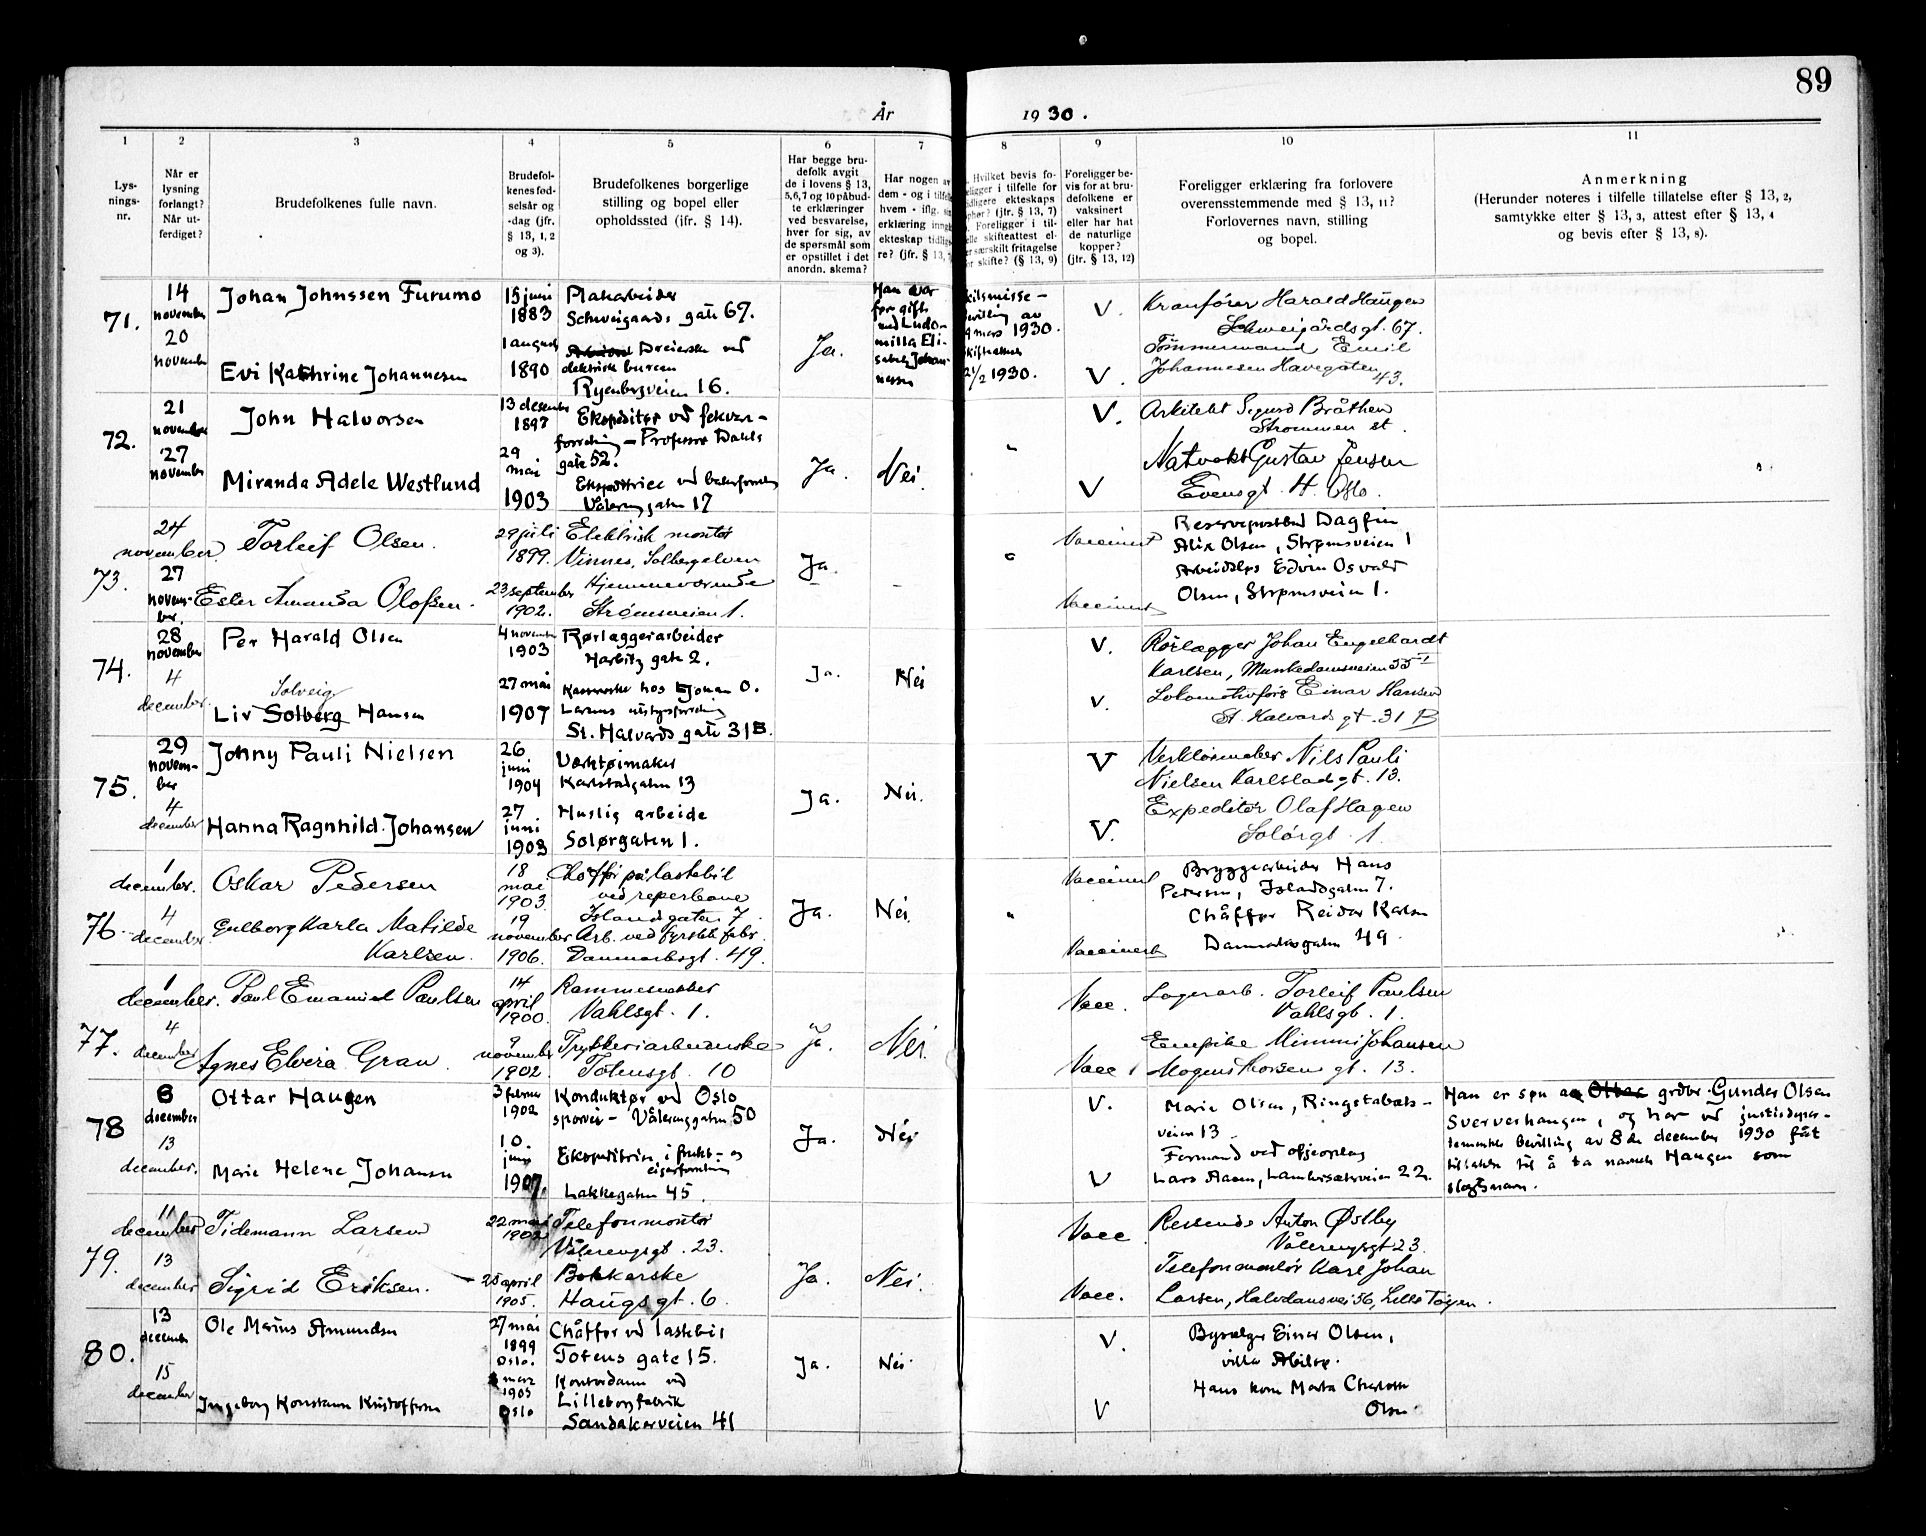 89
År 1930.
1 2 3 4 5 6 7 8 9 10 11
Lys-
nings-
nr.
Når er
lysning
forlangt?
Når ut-
ferdiget?
Brudefolkenes fulle navn.
Brudefol-
kenes fød-
selsår og
-dag (jfr.
§ 13, 1, 2
og 3).
Brudefolkenes borgerlige
stilling og bopel eller
opholdssted (jfr. § 14).
Har begge bru-
defolk avgit
de i lovens § 13,
5,6,7 og 10 påbud-
te erklæringer
ved besvarelse,
hver for sig, av
de spørsmål som
er opstillet i det
anordn. skema?
Har nogen av
dem - og i tilfelle
hvem - iflg. sin
erklæring inngått
ekteskap tidlige-
re? (jfr. § 13, 7
Hvilket bevis fo-
religger i tilfelle for
tidligere ekteskaps
ophør? (jfr. § 13, 7)
Foreligger i til-
felle skifteattest el-
ler særskilt fritagelse
for skifte? (§ 13, 9)
Foreligger be-
vis for at bru-
defolkene er
vaksinert
eller har hat
de naturlige
kopper?
(jfr. § 13, 12)
Foreligger erklæring fra forlovere
overensstemmende med § 13, 11?
Forlovernes navn, stilling
og bopel.
Anmerkning
(Herunder noteres i tilfelle tillatelse efter § 13, 2,
samtykke efter § 13, 3, attest efter § 13, 4
og bevis efter § 13, 8).
71.
14
november
20
november
Johan Johnssen Furumo
Evi Kathrine Johannesen
15 juni
1883
1 august
1890
Platearbeider
Schweigaards gate 67.
Dreierske ved
elektrisk bureau
Ryenbergveien 16.
Ja.
Han var
før gift
med Ludo-
milla Eli-
sabeth Johan-
nessen
skilsmisse-
bevilling av
mars 1930.
skifteattest
21/2 1930.
V.
V.
Kranfører Harald Haugen
Schweigårdsgt. 67.
Tömmermand Emil
Johannesen Havegaten
43.
72.
21
november
27
november
John Halvorsen
Miranda Adele Westlund
13 desember
1897
29
mai
1903
Ekspeditør ved
forretning - Professor Dahls
gate 52.
Ekspeditrice ved bakerforretn
Vålerenggaten 17
Ja
Nei.
"
V.
V
Arkitekt Sigurd Bråthen
Strømmen st.
Natvakt Gustav Jensen
Evensgt. 4. Oslo.
73.
24
november
27
novem-
ber.
Torleif Olsen.
Ester Amanda Olofsen.
29 juli
1899.
23 september
1902.
Elektrisk montør
Vinnes, Solbergelven
Hjemmeværende
Strømsveien 1.
Ja.
-
"
Vaccinert
Vaccinert
Reservepostbud Dagfin
Alix Olsen, Strømsveien 1
Arbeidsløs Edvin Osvald
Olsen, Strømsveien 1.
74.
28
november
4
december
Per Harald Olsen
Solveig
Liv Solberg Hansen
4 november
1903
27 mai
1907
Rørlæggerarbeider
Harbitz gate 2.
Kassererske hos Johan O.
Larsens utstyrsforretning
St. Halvards gate 31B.
Ja.
Nei
V.
V.
Rörlægger Johan Engelhardt
Karlsen, Munkedamsveien 55 I
Lokomotivförer Einar Hansen
St. Halvards gt. 31 B
75.
29
novem-
ber
4
december
Johny Pauli Nielsen
Hanna Ragnhild Johansen
26
juni
1904
27
juni
1903
Værktøimaker
Karlstadgaten 13
Huslig arbeide
Solørgaten 1.
Ja.
Nei.
V
V.
Verktöimaker Nils Pauli
Nielsen Karlstadgt. 13.
Expeditör Olaf Hagen
Solörgt. 1
76
1
december.
4
december
Oskar Pedersen
Gulborg Karla Matilde
Karlsen.
18
mai
1903
19
november
1906.
Chofför på lastebil
ved reperbane
Islandsgaten 7.
Arb. ved fyrstikkfabr.
Danmarksgt. 49.
Ja.
Nei.
"
Vaccinert
Vaccinert
Bryggearbeider Hans
Pedersen, Islandsgaten 7.
Chåffør Reidar Karlsen
Danmarksgaten 49.
77.
1
december.
4
december
Paul Emanuel Paulsen
Agnes Elvira Grau
14
april
1900.
9
november
1902.
Rammesnekker
Vahlsgt. 1.
Trykkeriarbeiderske
Totensgt. 10
Ja.
Nei.
Vacc.
Vacc.
Lagerarb. Torleif Paulsen
Vahlsgt. 1.
Enepike Mimmi Johansen
Mogens Thorsens gt. 13.
78
8
december
13
december.
Ottar Haugen
Marie Helene Johansen
3 februar
1902
10.
juni
1907.
Konduktør ved Oslo
sporvei - Vålerenggaten 50
Ekspeditrise i frukt- og
cigarforretning
Lakkegaten 45.
Ja.
Nei
V.
V
Marie Olsen, Ringstabæk-
veien 13
Formand ved
Lars Aasen, Lambertseterveien 22.
Han er søn av Ottar grdbr. Gunder Olsen
Sververhaugen, og har ved justisdepar-
tementets bevilling av 8 de december 1930 fåt
tillatelse til å ta navnet Haugen som
slegtsnavn.
79.
11
december
13
december
Tidemann Larsen
Sigrid Eriksen.
22 mai
1902
25 april
1905.
Telefonmontör
Vålerengsgt. 23.
Bokkerske
Haugsgt. 6.
Ja.
Nei.
Vacc
Vacc.
Reisende Anton Østby
Vålerengsgt 23.
Telefonmontör Karl Johan
Larsen, Halvdansvei 36, Lille Tøyen.
80.
13
december
15
december
Ole Marius Amundsen
Ingeborg Konstanse Kristoffersen
27 mai
1899
Oslo.
mars
1905
Oslo
Chåffør ved lastebil
Totens gate 15.
Kontordame ved
Lilleborg fabrik
Sandakerveien 41
Ja.
Nei.
V
V
Bysælger Einar Olsen,
villa Abilsø.
Hans kone Marta Charlotte
Olsen